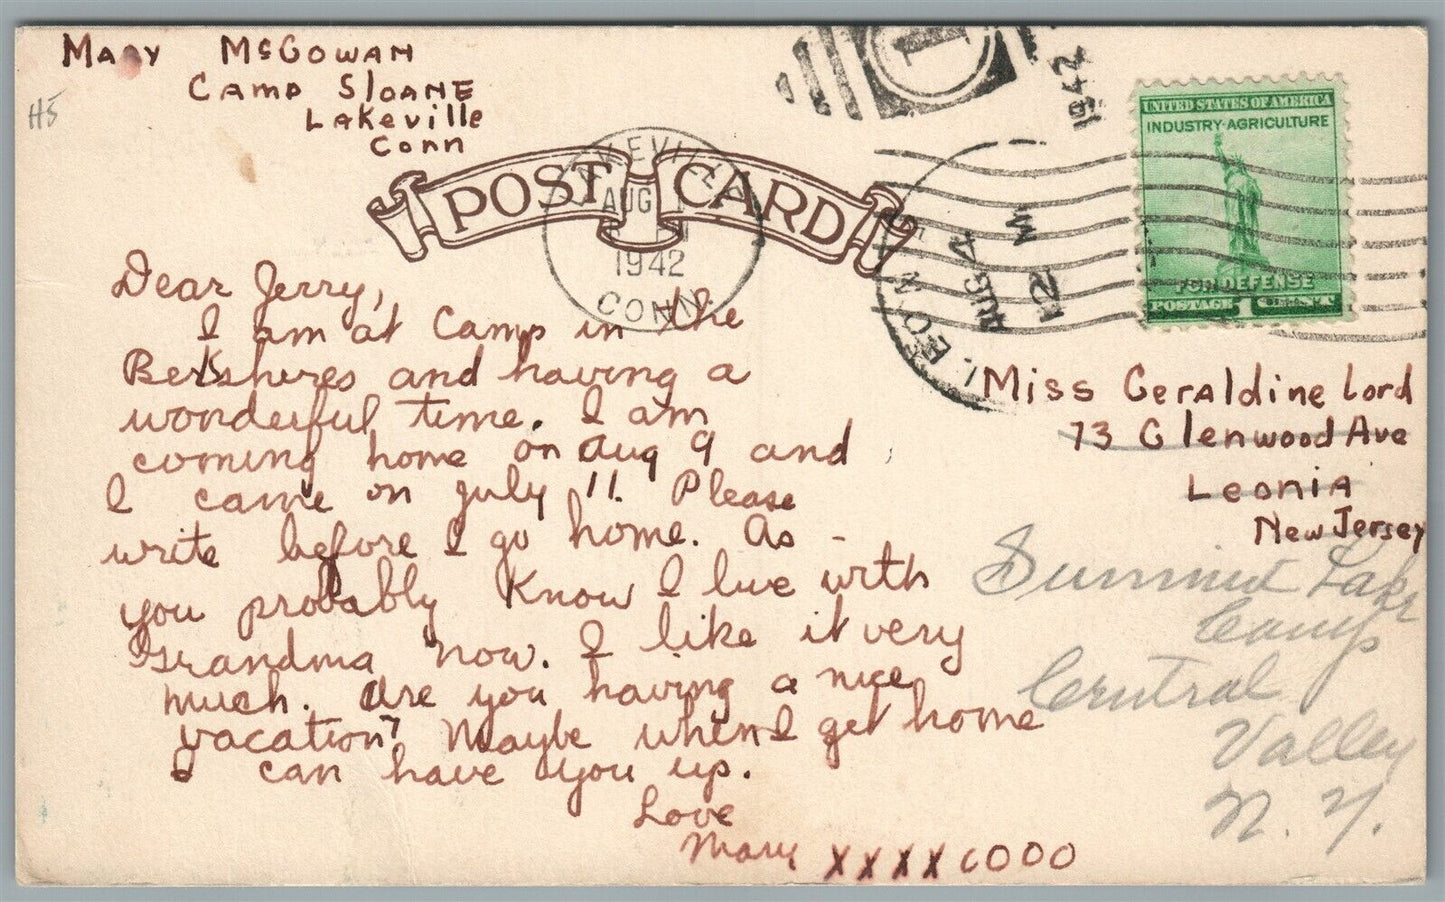 Mary McGowan
Camp Sloane
Lakeville
Conn
H5
POST CARD
LAKEVILLE
AUG
1942
CONN
1
1942
LEON
AUG 4
12 M
UNITED STATES OF AMERICA
INDUSTRY·AGRICULTURE
FOR DEFENSE
POSTAGE 1 CENT
Dear Jerry,
I am at Camp in the
Berkshires and having a
wonderful time. I am
coming home on Aug 9 and
I came on July 11. Please
write before I go home. As
you probably Know I live with
Grandma now. I like it very
much. Are you having a nice
vacation? Maybe when I get home
I can have you up.
Love
Mary XXXX OOOO
Miss Geraldine Lord
73 Glenwood Ave
Leonia
New Jersey
Summit Lake
Camp
Central
Valley
N. Y.